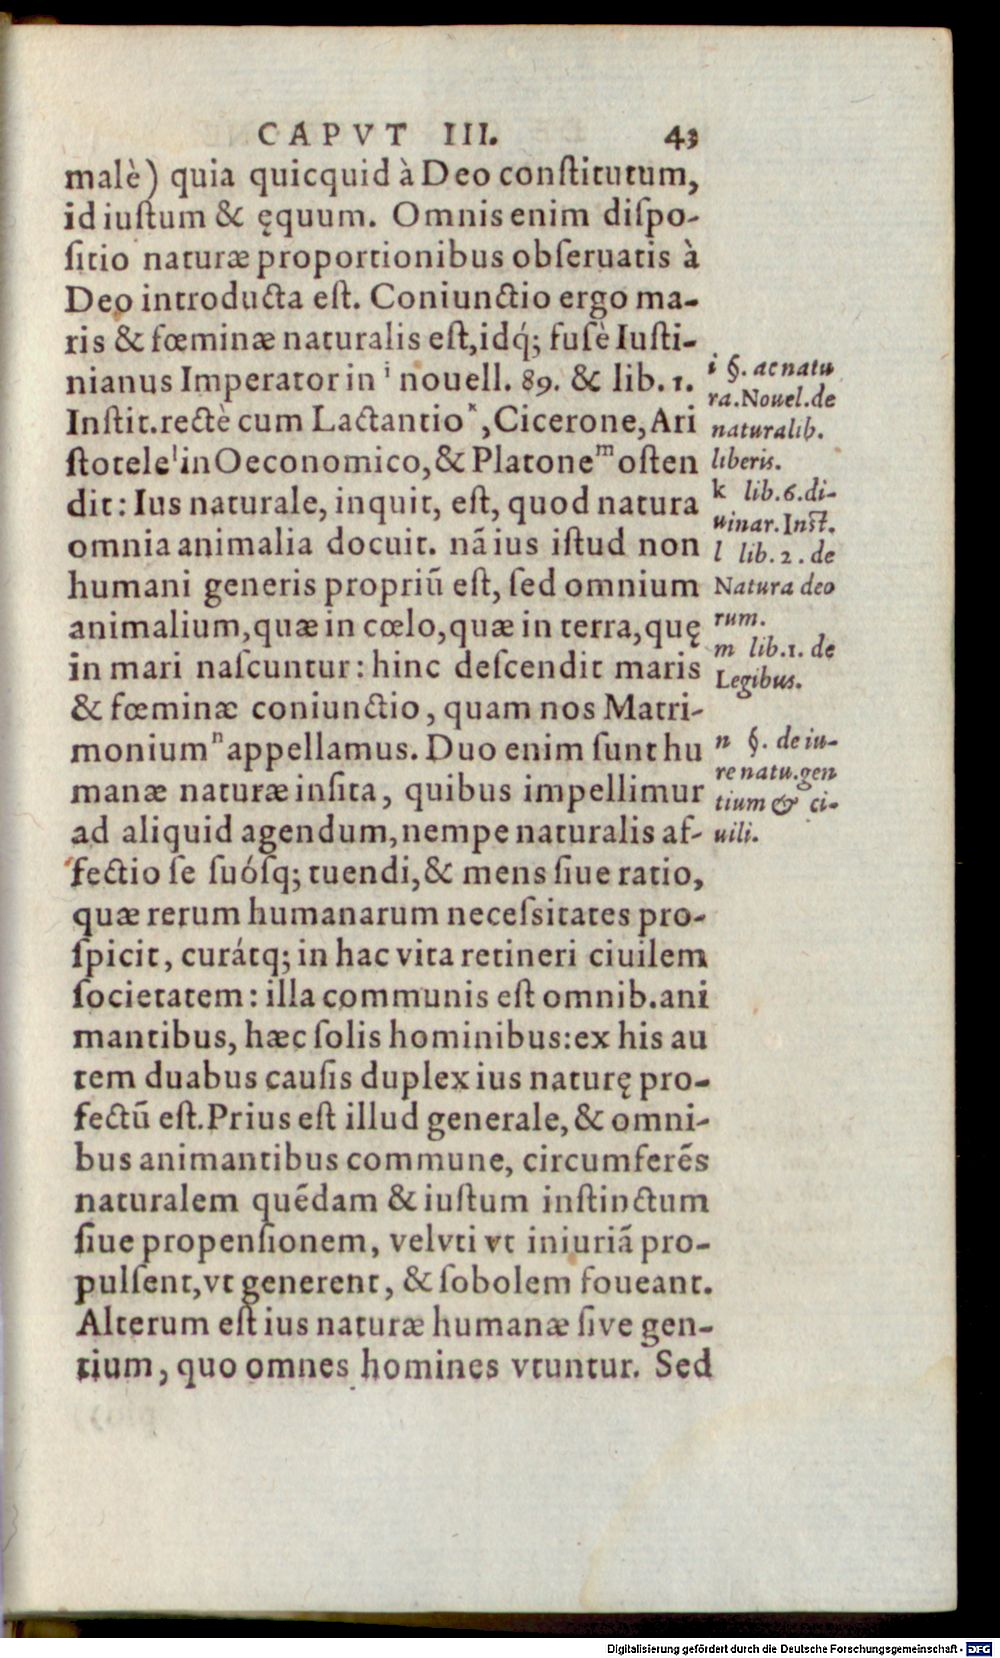 CAPVT III. 43
malè) quia quicquid à Deo conſtitutum,
id iuſtum & ęquum. Omnis enim diſpo-
ſitio naturæ proportionibus obſeruatis à
Deo introducta eſt. Coniunctio ergo ma-
ris & fœminæ naturalis eſt, idq́; fuſè Iuſti-
nianus Imperator in ⁱ nouell. 89. & lib. 1.
Inſtit. rectè cum Lactantio ᵏ, Cicerone, Ari
ſtotele ˡ in Oeconomico, & Platone ᵐ oſten
dit: Ius naturale, inquit, eſt, quod natura
omnia animalia docuit. nã ius iſtud non
humani generis propriũ eſt, ſed omnium
animalium, quæ in cœlo, quæ in terra, quę
in mari naſcuntur: hinc deſcendit maris
& fœminæ coniunctio, quam nos Matri-
monium ⁿ appellamus. Duo enim ſunt hu
manæ naturæ inſita, quibus impellimur
ad aliquid agendum, nempe naturalis af-
fectio ſe ſuóſq; tuendi, & mens ſiue ratio,
quæ rerum humanarum neceſsitates pro-
ſpicit, curátq; in hac vita retineri ciuilem
ſocietatem: illa communis eſt omnib. ani
mantibus, hæc ſolis hominibus: ex his au
tem duabus cauſis duplex ius naturę pro-
fectũ eſt. Prius eſt illud generale, & omni-
bus animantibus commune, circumferẽs
naturalem quẽdam & iuſtum inſtinctum
ſiue propenſionem, velvti vt iniuriã pro-
pulſent, vt generent, & ſobolem foueant.
Alterum eſt ius naturæ humanæ ſive gen-
tium, quo omnes homines vtuntur. Sed
i §. ac natu
ra. Nouel. de
naturalib.
liberis.
k lib. 6. di-
uinar. Inſt.
l lib. 2. de
Natura deo
rum.
m lib. 1. de
Legibus.
n §. de iu-
re natu. gen
tium & ci-
uili.
Digitalisierung gefördert durch die Deutsche Forschungsgemeinschaft - DFG